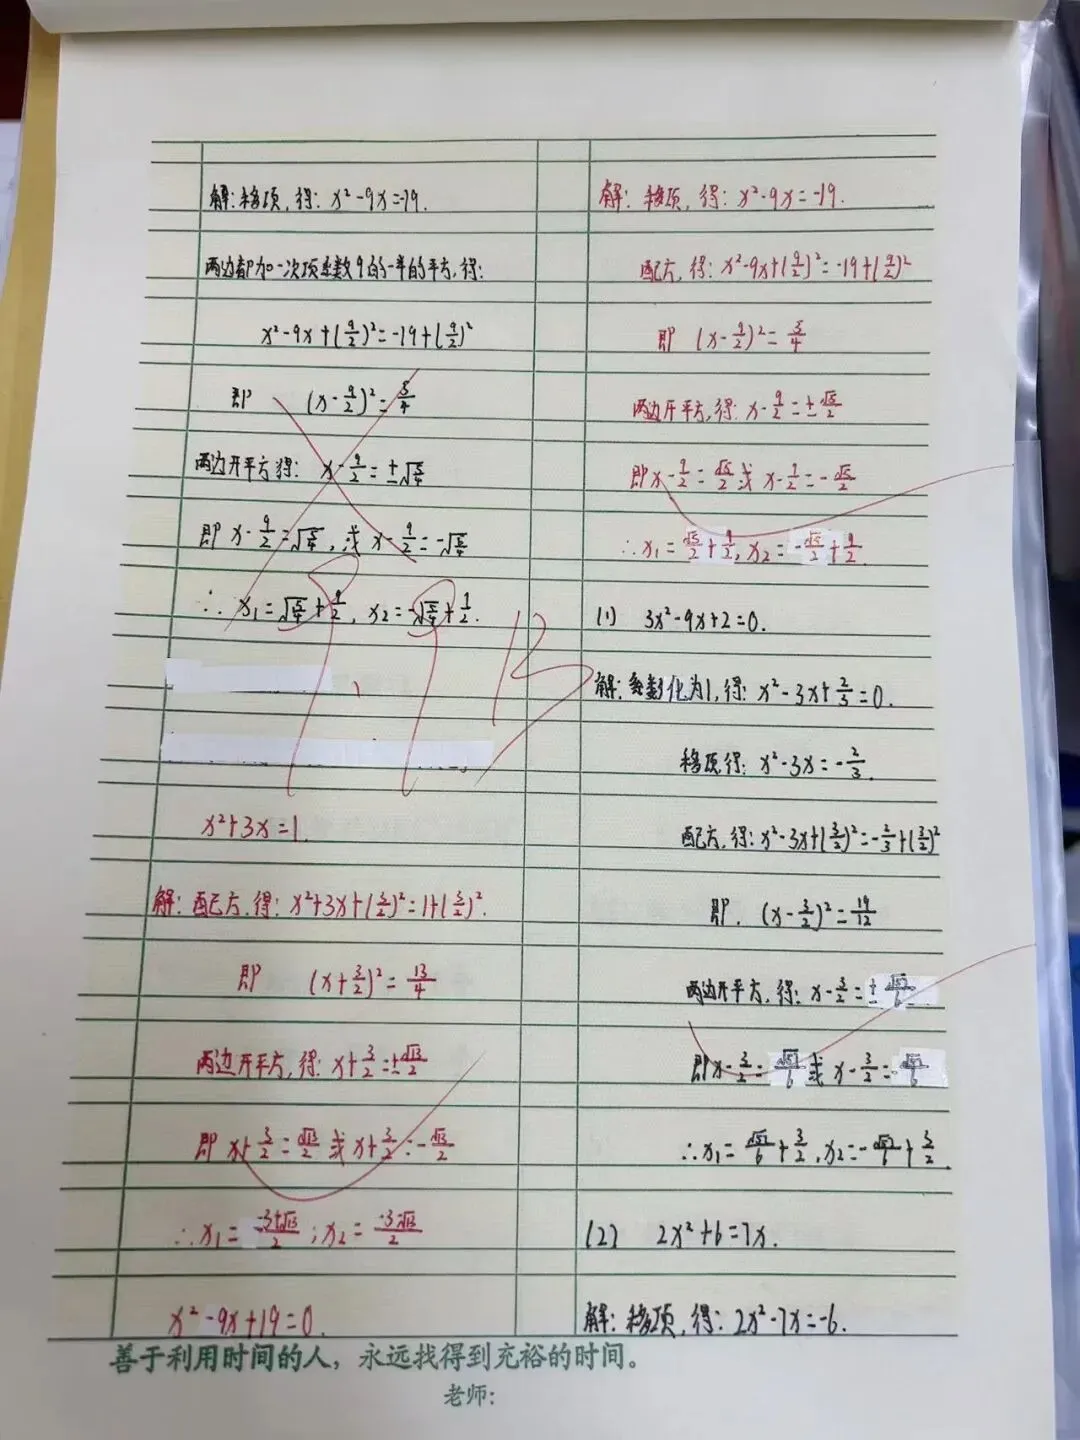 解:移项,得: x²-9x=-19.
两边都加一次项系数9的一半的平方,得:
x²-9x+(9/2)²=-19+(9/2)²
即 (x-9/2)²=5/4
两边开平方得: x-9/2=±√5/4
即 x-9/2=√5/4,或 x-9/2=-√5/4
∴ x₁=√5/4+9/2, x₂=-√5/4+9/2.
x²+3x=1.
解:配方,得: x²+3x+(3/2)²=1+(3/2)².
即 (x+3/2)²=13/4
两边开平方,得: x+3/2=±√13/2
即 x+3/2=√13/2 或 x+3/2=-√13/2
∴x₁=-3+√13/2;x₂=-3-√13/2
x²-9x+19=0.
解:移项,得: x²-9x=-19.
配方,得: x²-9x+(9/2)²=-19+(9/2)²
即 (x-9/2)²=5/4
两边开平方,得: x-9/2=±√5/2
即x-9/2=√5/2或 x-9/2=-√5/2
∴x₁=√5/2+9/2,x₂=-√5/2+9/2.
(1) 3x²-9x+2=0.
解:系数化为1,得: x²-3x+2/3=0.
移项得: x²-3x=-2/3.
配方,得: x²-3x+(3/2)²=-2/3+(3/2)²
即. (x-3/2)²=19/12
两边开平方,得: x-3/2=±√57/6
即x-3/2=√57/6 或 x-3/2=-√57/6
∴x₁=√57/6+3/2,x₂=-√57/6+3/2.
(2) 2x²+6=7x.
解:移项,得: 2x²-7x=-6.
善于利用时间的人,永远找得到充裕的时间。
老师: